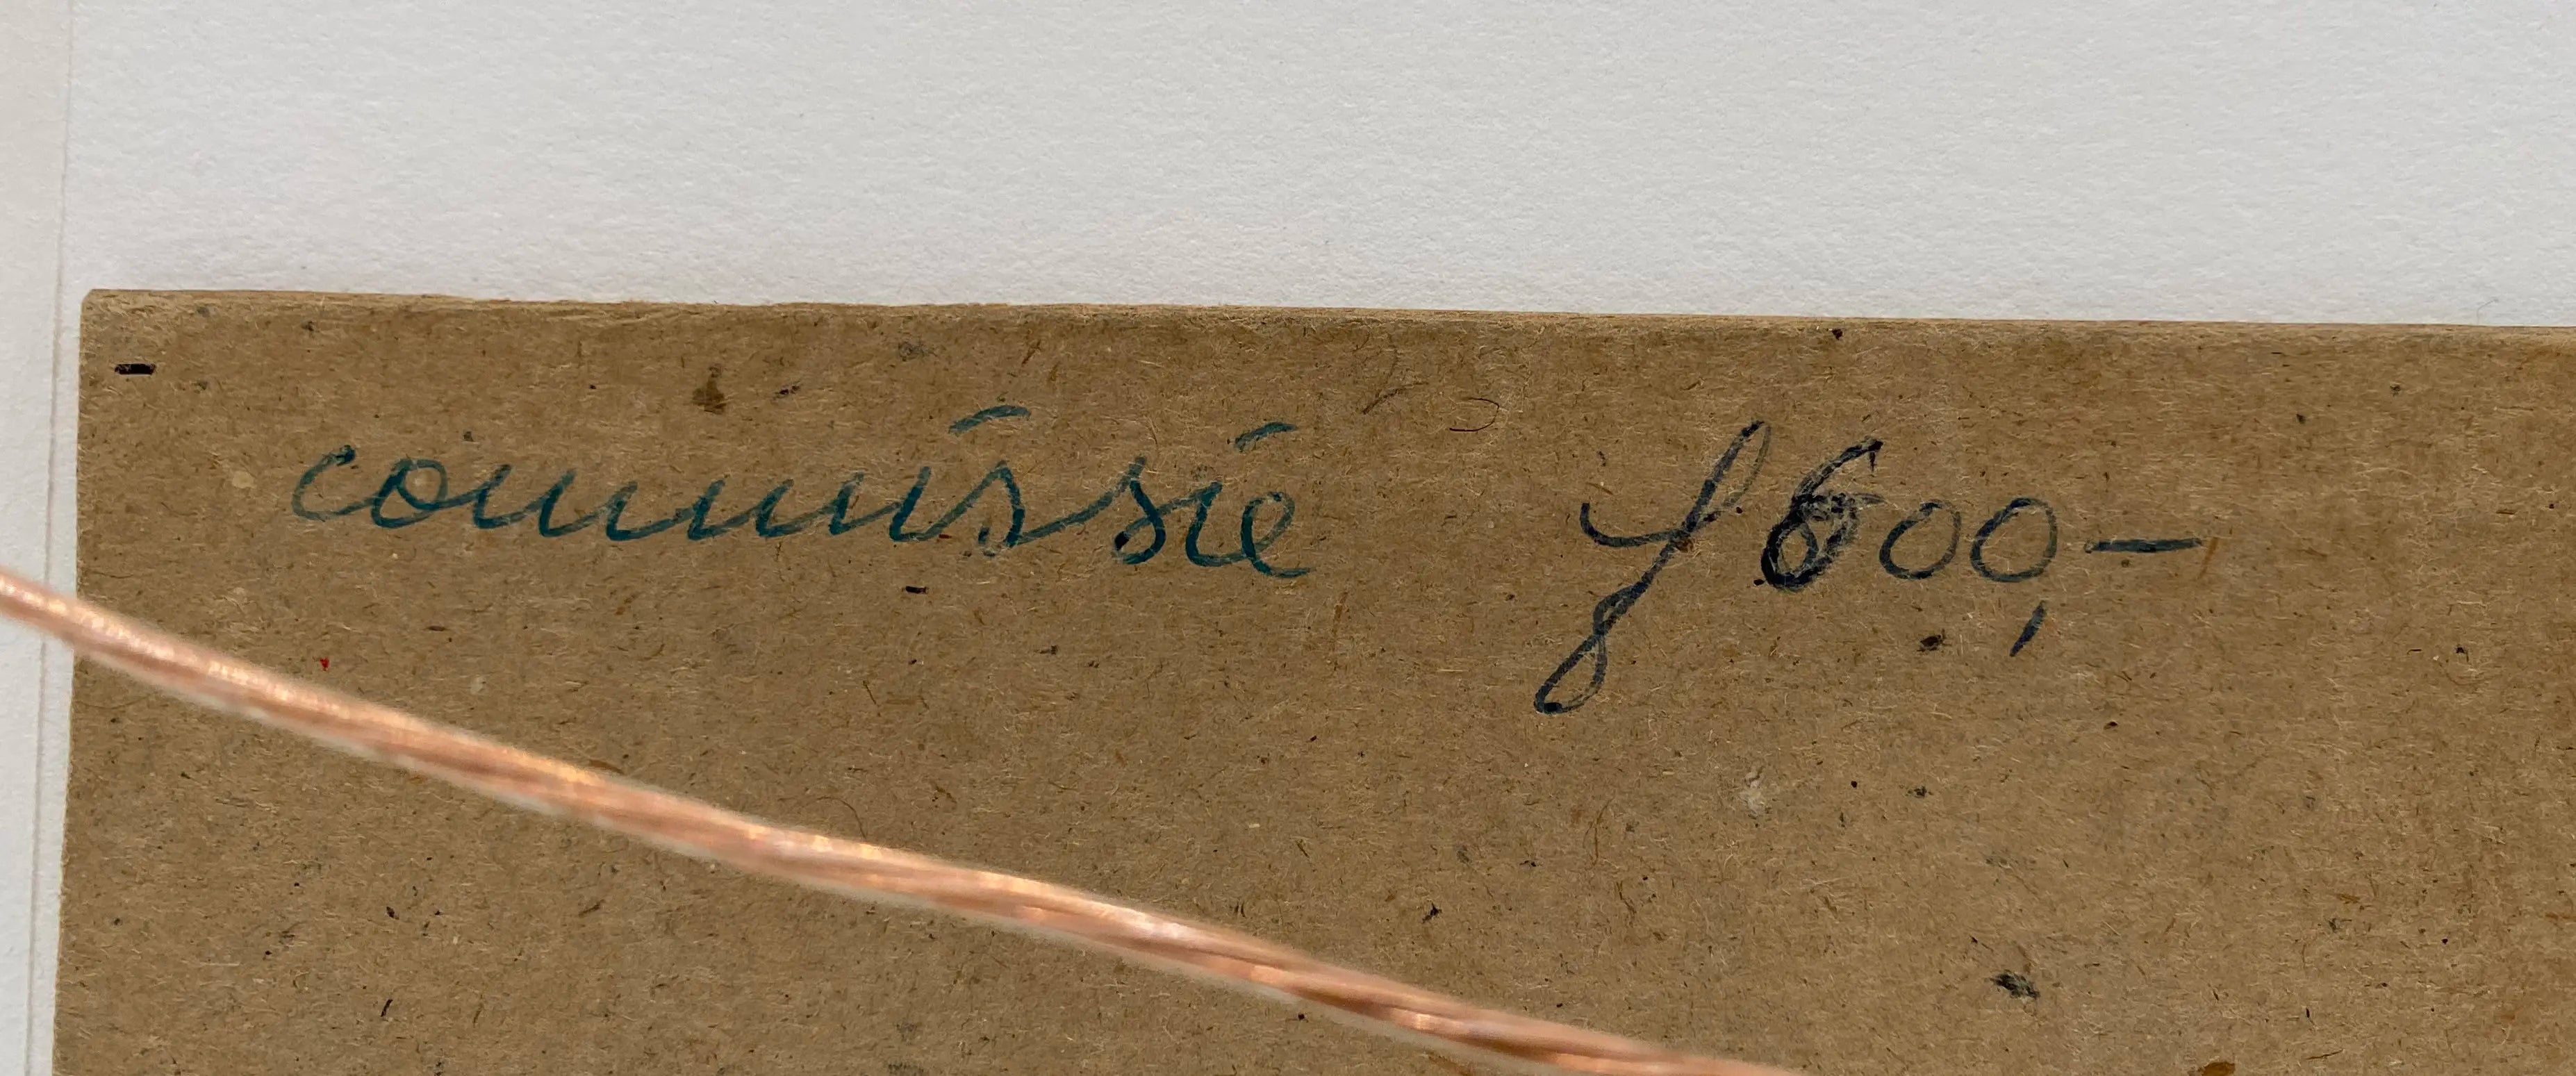 commissie f 600,-